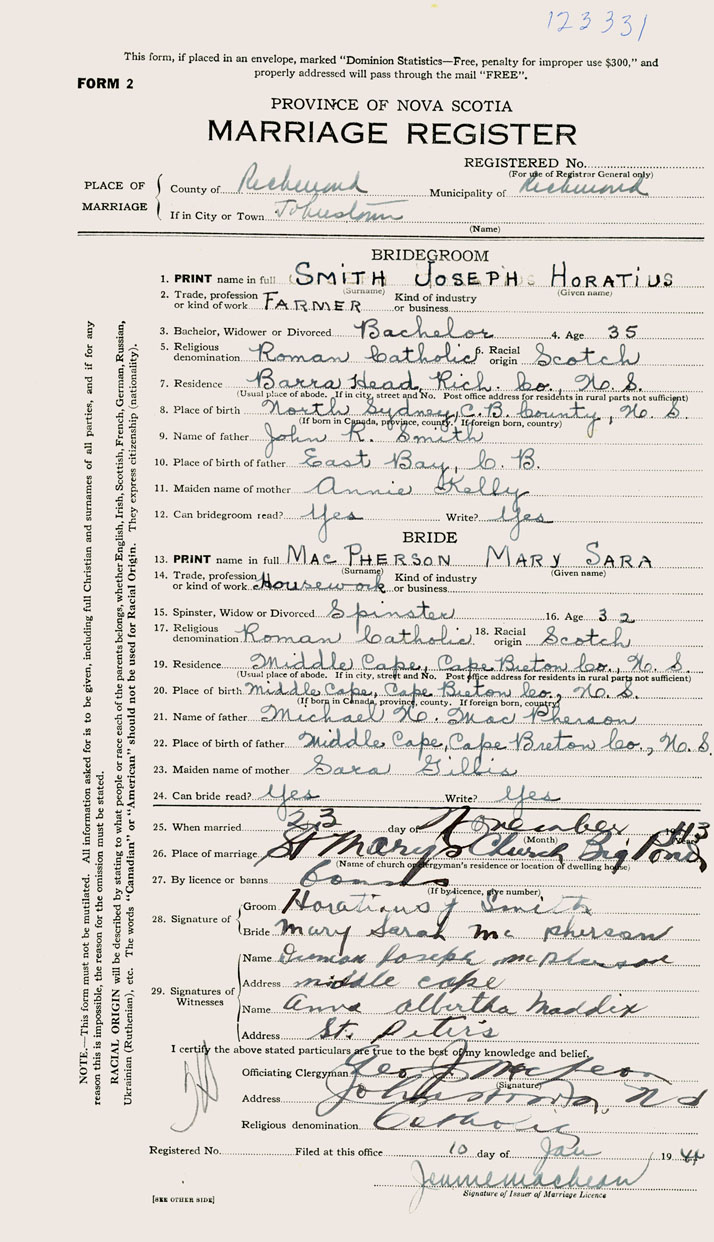 123331
This form, if placed in an envelope, marked "Dominion Statistics—Free, penalty for improper use $300," and
properly addressed will pass through the mail "FREE".
FORM 2
PROVINCE OF NOVA SCOTIA
MARRIAGE REGISTER
REGISTERED No.
(For use of Registrar General only)
PLACE OF MARRIAGE
County of Richmond Municipality of Richmond
If in City or Town Johnstown
(Name)
BRIDEGROOM
1. PRINT name in full SMITH JOSEPH HORATIUS
(Surname) (Given name)
2. Trade, profession or kind of work FARMER Kind of industry or business
3. Bachelor, Widower or Divorced Bachelor 4. Age 35
5. Religious denomination Roman Catholic 6. Racial origin Scotch
7. Residence Barra Head, Rich. Co., N. S.
(Usual place of abode. If in city, street and No. Post office address for residents in rural parts not sufficient)
8. Place of birth North Sydney, C.B. County, N. S.
(If born in Canada, province, county. If foreign born, country)
9. Name of father John R. Smith
10. Place of birth of father East Bay, C. B.
11. Maiden name of mother Annie Kelly
12. Can bridegroom read? Yes Write? Yes
BRIDE
13. PRINT name in full MAC PHERSON MARY SARA
(Surname) (Given name)
14. Trade, profession or kind of work Housework Kind of industry or business
15. Spinster, Widow or Divorced Spinster 16. Age 32
17. Religious denomination Roman Catholic 18. Racial origin Scotch
19. Residence Middle Cape, Cape Breton Co., N. S.
(Usual place of abode. If in city, street and No. Post office address for residents in rural parts not sufficient)
20. Place of birth Middle Cape, Cape Breton Co., N. S.
(If born in Canada, province, county. If foreign born, country)
21. Name of father Michael N. Mac Pherson
22. Place of birth of father Middle Cape, Cape Breton Co., N. S.
23. Maiden name of mother Sara Gillis
24. Can bride read? Yes Write? Yes
25. When married 23 day of November 1943
(Month) (Year)
26. Place of marriage St Mary's Church Big Pond
(Name of church or clergyman's residence or location of dwelling house)
27. By licence or banns
(If by licence, give number)
28. Signature of
Groom Horatious J Smith
Bride Mary Sarah Mc Pherson
29. Signatures of Witnesses
Name Joseph McPherson
Address middle cape
Name Anna albertha Maddix
Address St. Peter's
I certify the above stated particulars are true to the best of my knowledge and belief.
Officiating Clergyman Geo J
(Signature)
Address Johnstown N S
Religious denomination Catholic
Registered No. Filed at this office 10 day of Jan 1944
Signature of Issuer of Marriage Licence
[SEE OTHER SIDE]
NOTE.—This form must not be mutilated. All information asked for is to be given, including full Christian and surnames of all parties, and if for any
reason this is impossible, the reason for the omission must be stated.
RACIAL ORIGIN will be described by stating to what people or race each of the parents belongs, whether English, Irish, Scottish, French, German, Russian,
Ukrainian (Ruthenian), etc. The words "Canadian" or "American" should not be used for Racial Origin. They express citizenship (nationality).